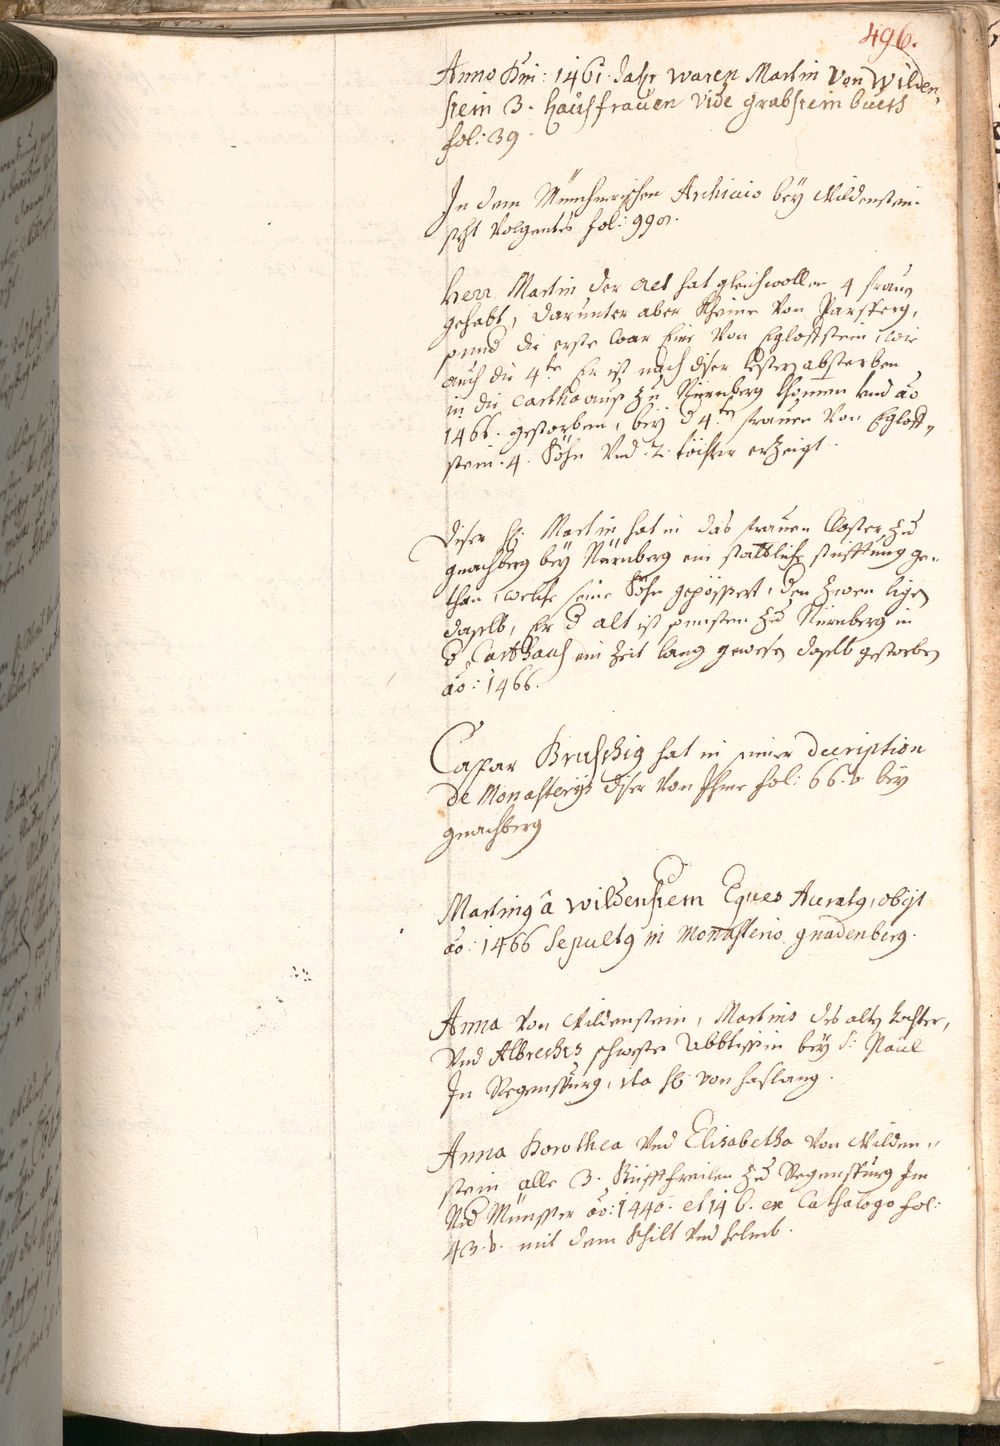 496.
Anno Dni: 1461 Jahr waren Martin Von Wilden,
stein 3. haüsfrauen vide grabstein buech
fol: 39
In dem Münchnerischen Archivio beÿ Wildenstein
steht volgentes fol: 990.
Herr Martin der Alt hat gleichwollen 4 frauen
gehabt, darunter aber kheine von Parsperg,
sonnd die erste war Eine von Egloffstein, wie
auch die 4te Er ist nach diser lesten absterben
in die Carthaüss zu Nürnberg khomen und ao
1466. gestorben, beÿ d 4ten frauen von Egloff,
stein 4. Söhn Und 2. töchter erzeigt.
Diser H: Martin hat in das frauen Closter zu
gnachberg beÿ Nürnberg ein stattliche stüfftung ge,,
than, welche seine Söhn gepössert, den zween ligen
daselb, Er d alt ist sonsten zu Nürnberg in
d Carthaus ein Zeit lang gewesen daselb gestorben
ao: 1466.
Caspar Bruschig hat in seiner decription
de Monasterijs diser von Ihme fol: 66. v. beÿ
gnachberg
Martinq à wildenstein Eques Auratq, obijt
ao: 1466 Sepultq in Monasterio gnadenberg.
Anna von Wildenstein, Martins des alten tochter,
Und Albrechts schwester Abbtissin beÿ S: Paul
In Regenspurg, ita H von haslang.
Anna Dorothea Und Elisabetha von Wilden,,
stein alle 3. Stüfftfreilen zu Regenspurg Im
Nid Münster ao: 1440. et 14 6. ex Cathalogo fol:
43. v. mit dem Schilt und helmb.